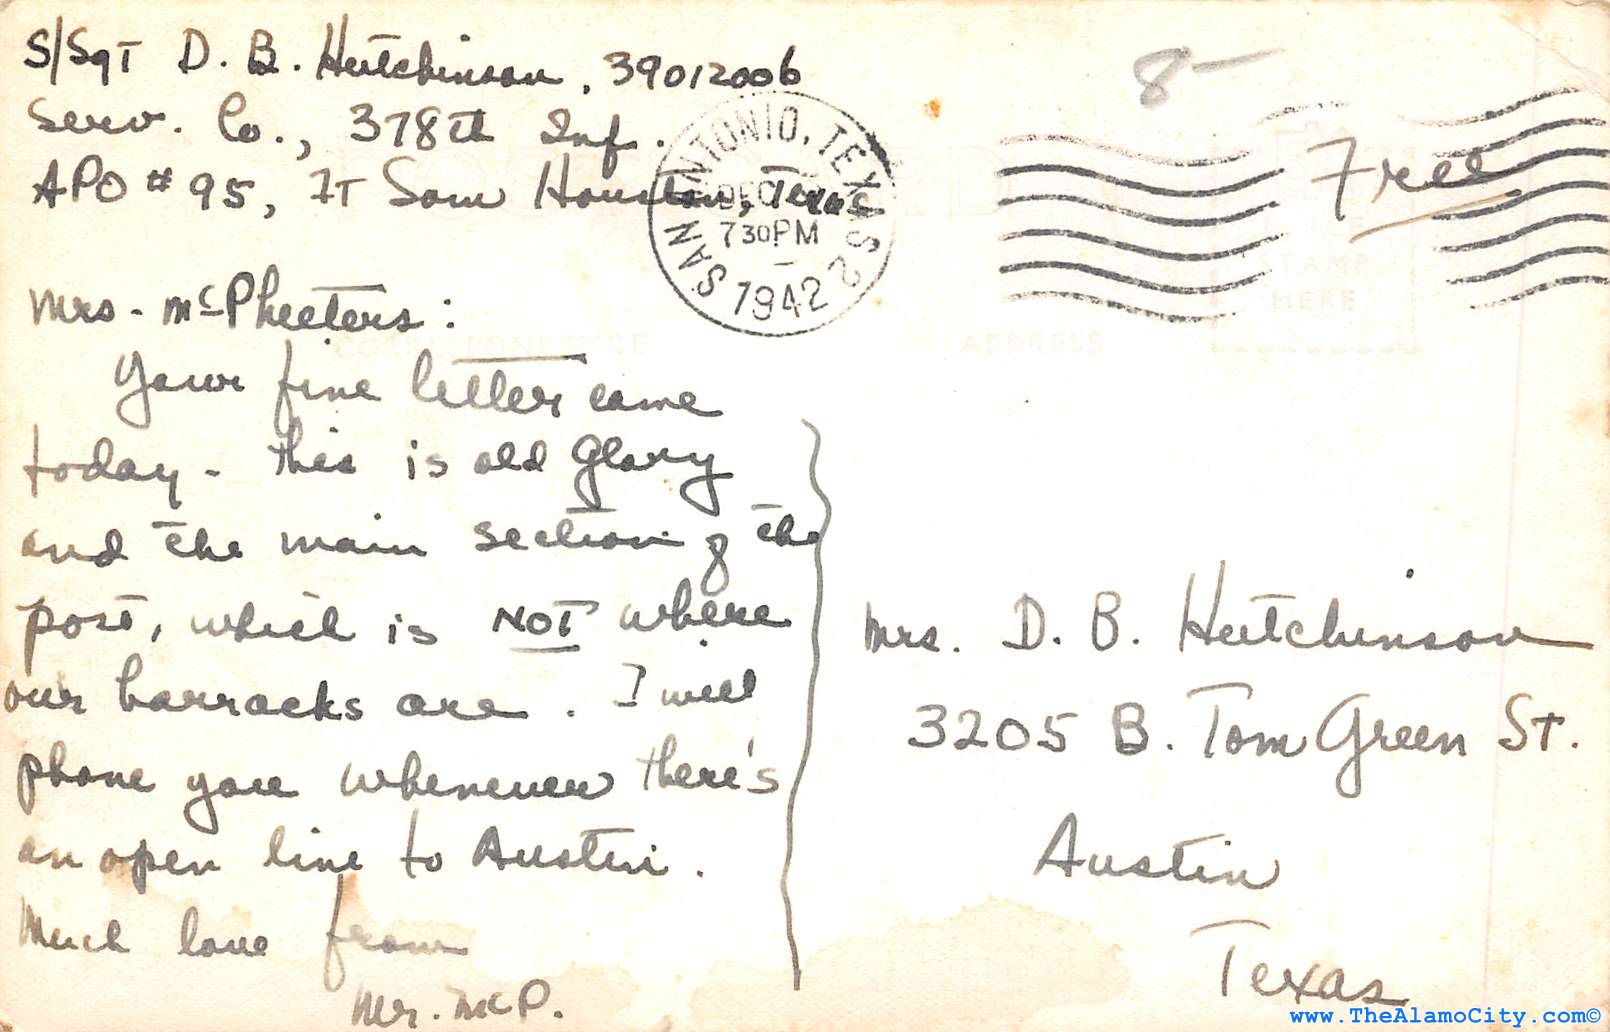 S/Sgt D. B. Hutchinson, 39012006
Serv. Co., 378th Inf.
APO # 95, Ft Sam Houston, Texas
8-
Free
SAN ANTONIO, TEXAS 2
DEC
730PM
1942
STAMP
HERE
CORRESPONDENCE
ADDRESS
Mrs. McPheeters:
Your fine letter came
today - this is old glory
and the main section of the
post, which is NOT where
our barracks are. I will
phone you whenever there's
an open line to Austin.
Much love from
Mr. McP.
Mrs. D. B. Hutchinson
3205 B. Tom Green St.
Austin
Texas
www.TheAlamoCity.com©